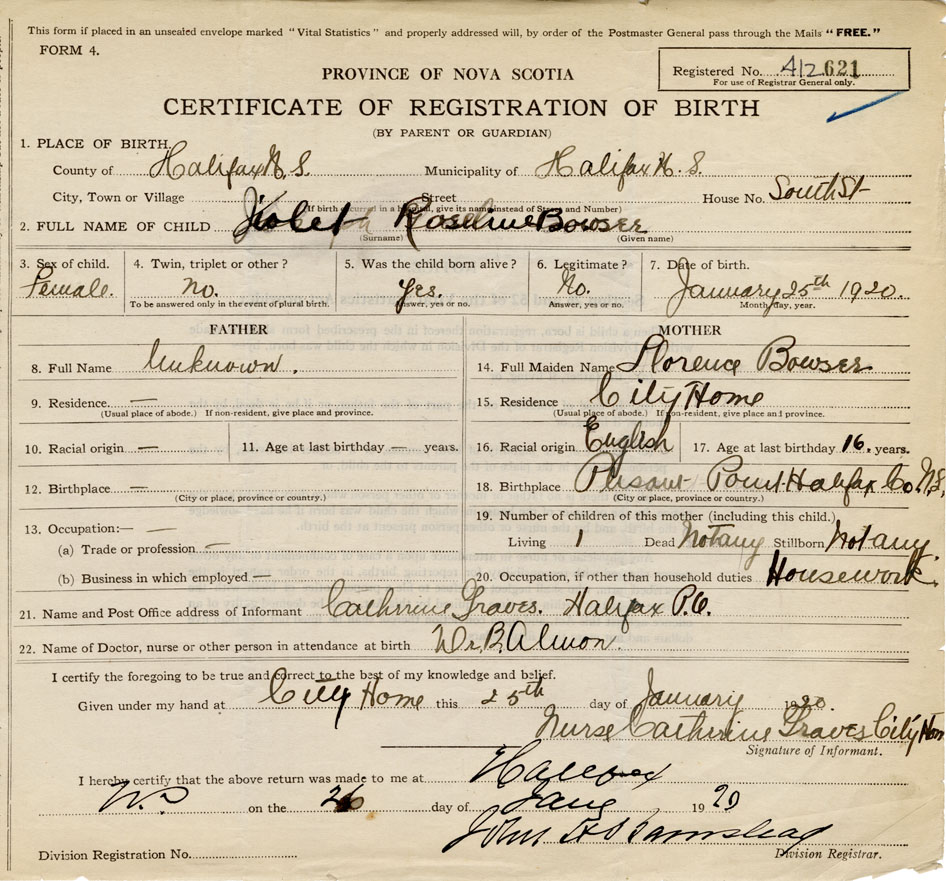 This form if placed in an unsealed envelope marked "Vital Statistics" and properly addressed will, by order of the Postmaster General pass through the Mails "FREE."
FORM 4.
Registered No. 412 621
For use of Registrar General only.
PROVINCE OF NOVA SCOTIA
CERTIFICATE OF REGISTRATION OF BIRTH
(BY PARENT OR GUARDIAN)
1. PLACE OF BIRTH.
County of Halifax N.S. Municipality of Halifax N.S.
City, Town or Village Street House No. South St
(If birth occurred in a hospital, give its name instead of Street and Number)
2. FULL NAME OF CHILD Violet Roseline Bowser
(Surname) (Given name)
3. Sex of child. 4. Twin, triplet or other? 5. Was the child born alive? 6. Legitimate? 7. Date of birth.
Female. No. Yes. No. January 25th 1920.
To be answered only in the event of plural birth. Answer, yes or no. Answer, yes or no. Month, day, year.
FATHER MOTHER
8. Full Name Unknown. 14. Full Maiden Name Florence Bowser
9. Residence. — 15. Residence City Home
(Usual place of abode.) If non-resident, give place and province. (Usual place of abode.) If non-resident, give place and province.
10. Racial origin — 11. Age at last birthday — years. 16. Racial origin English 17. Age at last birthday 16. years.
12. Birthplace — 18. Birthplace Plesant Point Halifax Co N.S.
(City or place, province or country.) (City or place, province or country.)
13. Occupation:— — 19. Number of children of this mother (including this child.)
(a) Trade or profession — Living 1 Dead Notany Stillborn Notany.
(b) Business in which employed — 20. Occupation, if other than household duties Housework.
21. Name and Post Office address of Informant Cathrine Graves. Halifax P.O.
22. Name of Doctor, nurse or other person in attendance at birth Dr. B. Almon.
I certify the foregoing to be true and correct to the best of my knowledge and belief.
Given under my hand at City Home this 25th day of January 1920.
Nurse Catherine Graves City Hom
Signature of Informant.
I hereby certify that the above return was made to me at Halifax
N.S on the 26 day of Jany 1920
John H Barnstead
Division Registration No. Division Registrar.